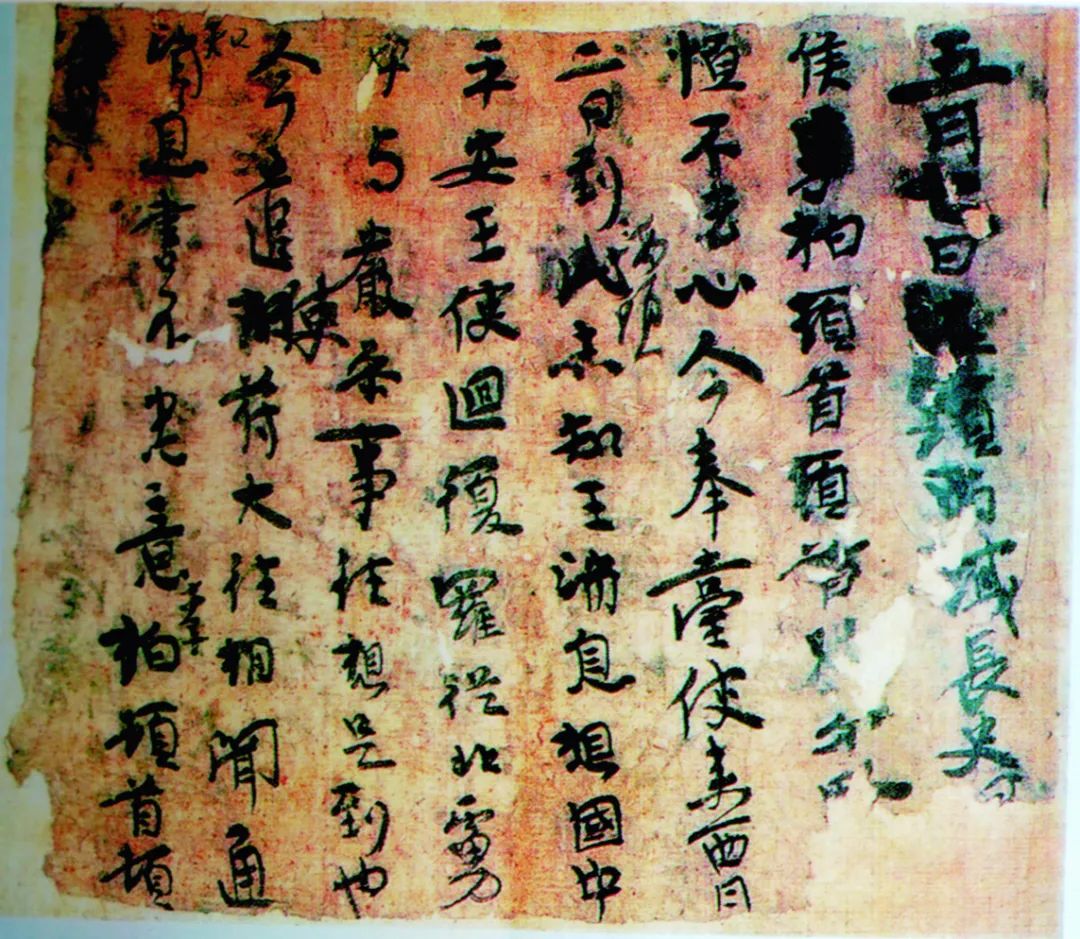 五月七日頭西域長史
侯柏頓首頓首
恒不去心今奉臺使來西月
二日到此海頭未知王消息想國中
平安王使迴復羅從北虜
中与嚴參事往想是到也
今遣使苻大往相聞通
知消息書不悉意李柏頓首頓